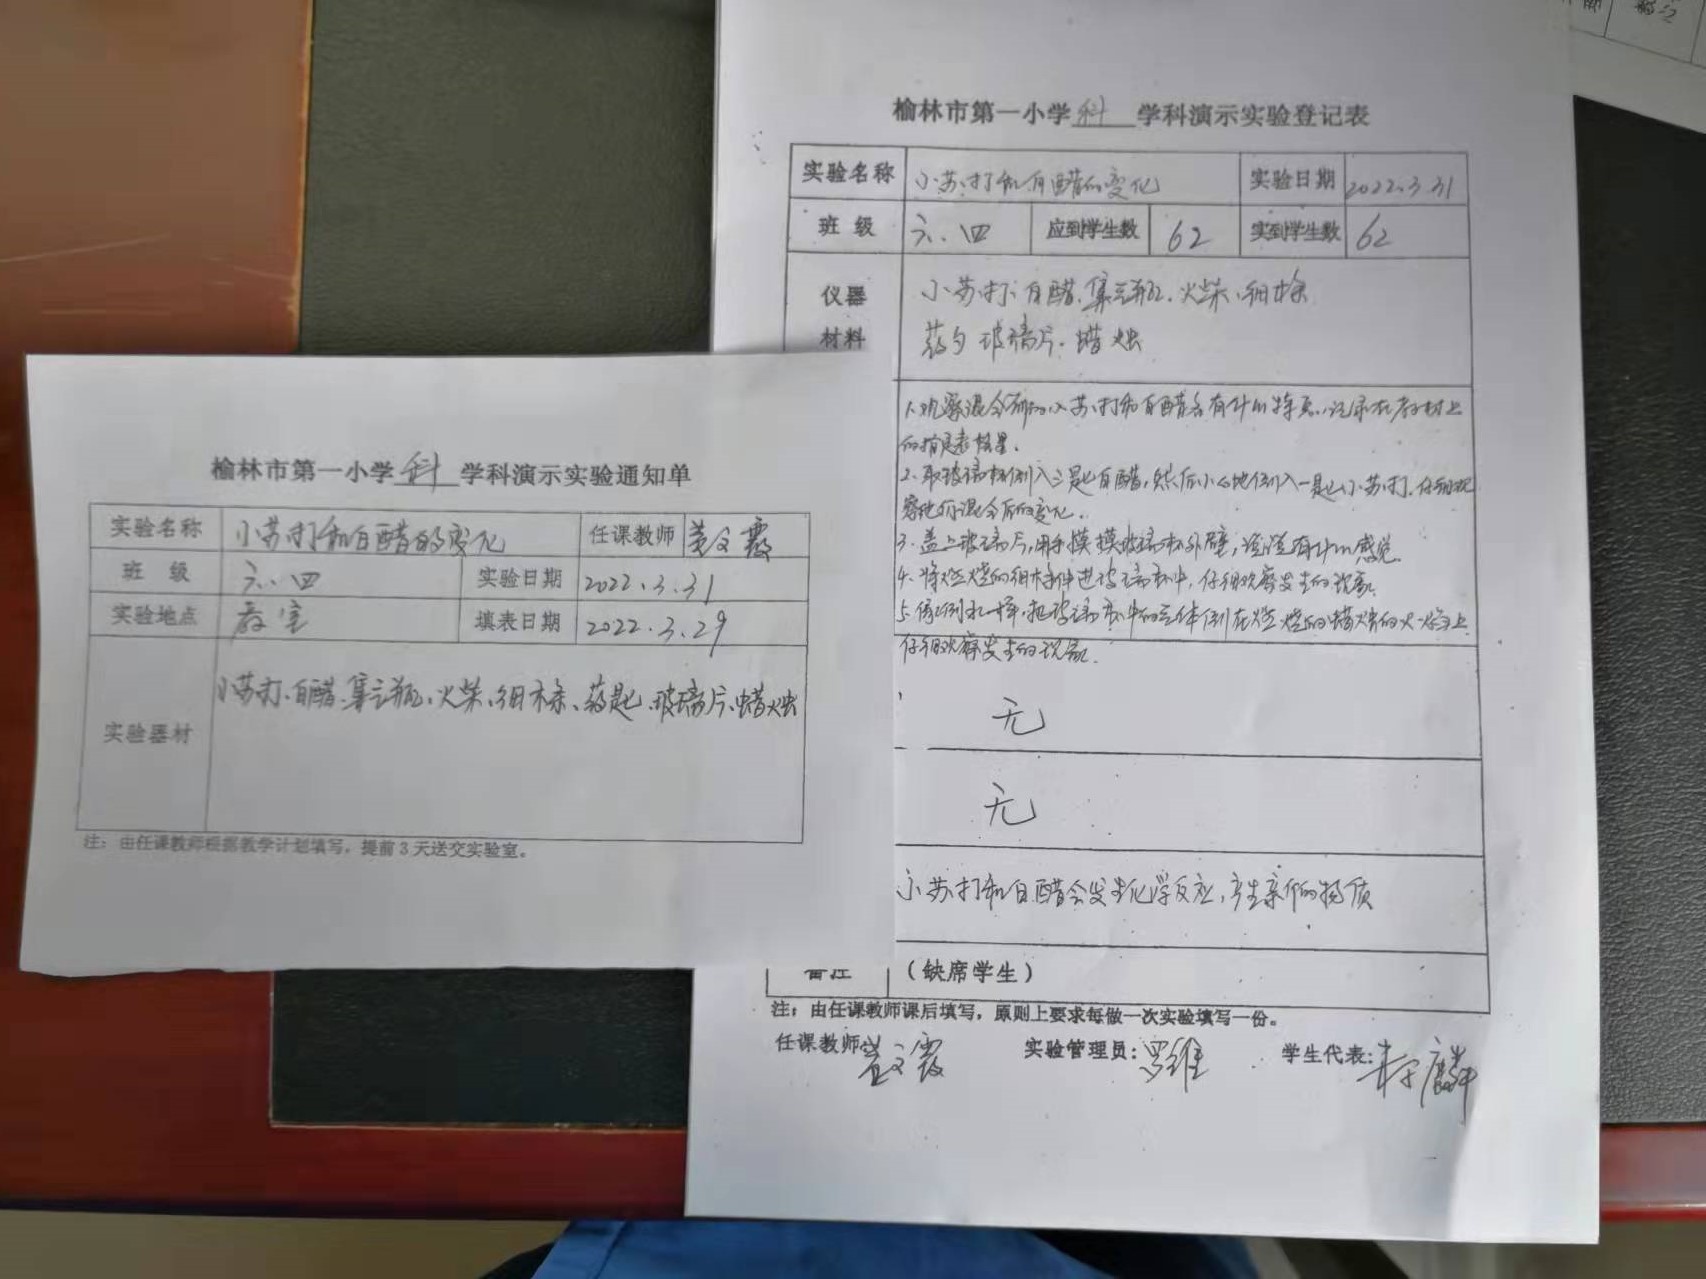 榆林市第一小学科学科演示实验通知单
实验名称 小苏打和白醋的变化 任课教师 文霞
班 级 六.四 实验日期 2022.3.31
实验地点 教室 填表日期 2022.3.29
实验器材 小苏打、白醋、集气瓶、火柴、细木条、药匙、玻璃片、蜡烛
注：由任课教师根据教学计划填写，提前3天送交实验室。
榆林市第一小学科学科演示实验登记表
实验名称 小苏打和白醋的变化 实验日期 2022.3.31
班 级 六.四 应到学生数 62 实到学生数 62
仪器 小苏打、白醋、集气瓶、火柴、细木条
材料 药勺 玻璃片、蜡烛
1.观察混合前的小苏打和白醋各有什么特点，记录在教材上
的气泡图里.
2.取玻璃杯倒入三匙白醋，然后小心地倒入一匙小苏打，仔细观
察他们混合后的变化.
3.盖上玻璃片，用手摸摸玻璃杯外壁，说说有什么感觉.
4.将燃烧的细木条伸进玻璃杯中，仔细观察发生的现象.
5.像倒水一样，把玻璃杯中的气体倒在燃烧的蜡烛的火焰上
仔细观察发生的现象.
无
无
小苏打和白醋会发生化学反应，产生新的物质
备注 （缺席学生）
注：由任课教师课后填写，原则上要求每做一次实验填写一份。
任课教师 文霞 实验管理员：罗维 学生代表：